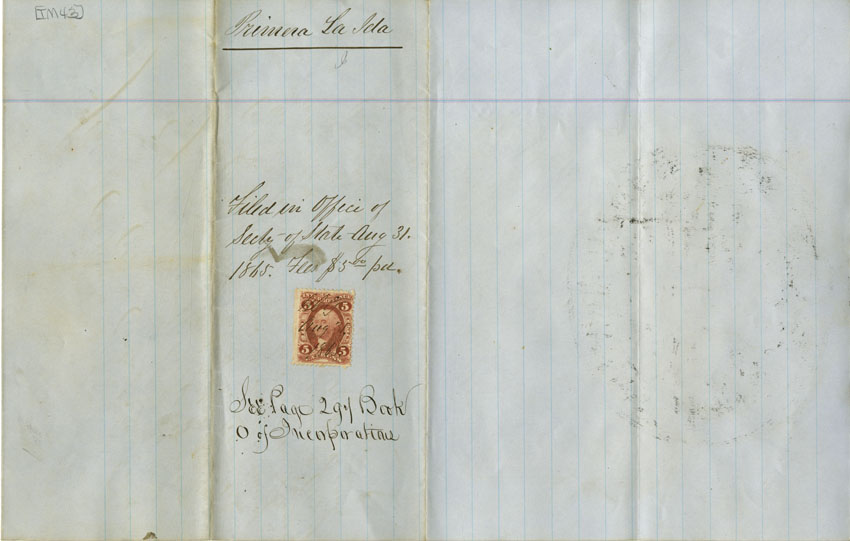 IM43
Primera La Ida
Filed in Office of
Secty of State Aug 31.
1865. Fees $5.00 pd.
5 5
Aug
5 5
See Page 297 Book
O of Incorporations